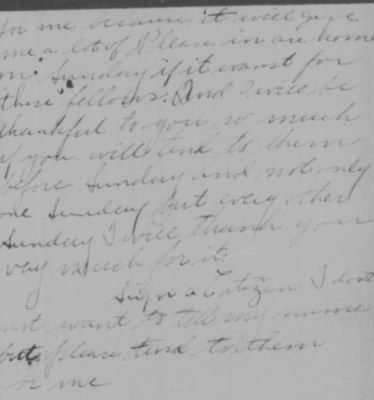 for me because it will give
me a lot of Please in are home
on Sunday if it wasnt for
these fellows. And I will be
thankful to you so much
if you will tend to them
before Sunday and not only
one Sunday but every other
Sunday I will thank you
very much for it
Sign a Citizen I dont
want to tell my name
but please tend to them
for me